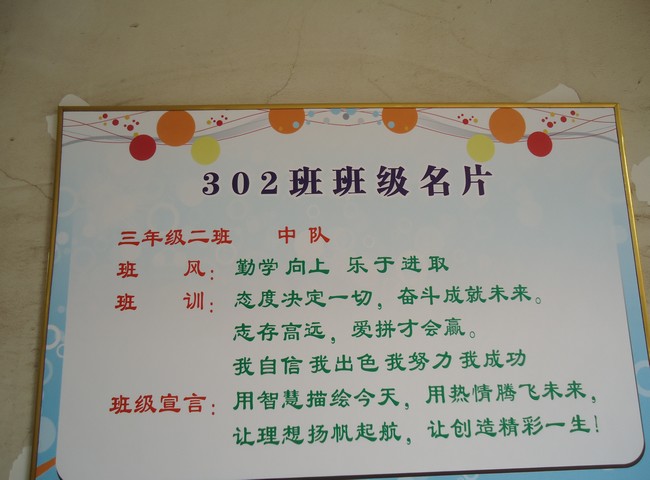 302班班级名片
三年级二班 中队
班 风： 勤学 向上 乐于 进取
班 训： 态度决定一切，奋斗成就未来。
志存高远，爱拼才会赢。
我自信 我出色 我努力 我成功
班级宣言： 用智慧描绘今天，用热情腾飞未来，
让理想扬帆起航，让创造精彩一生！